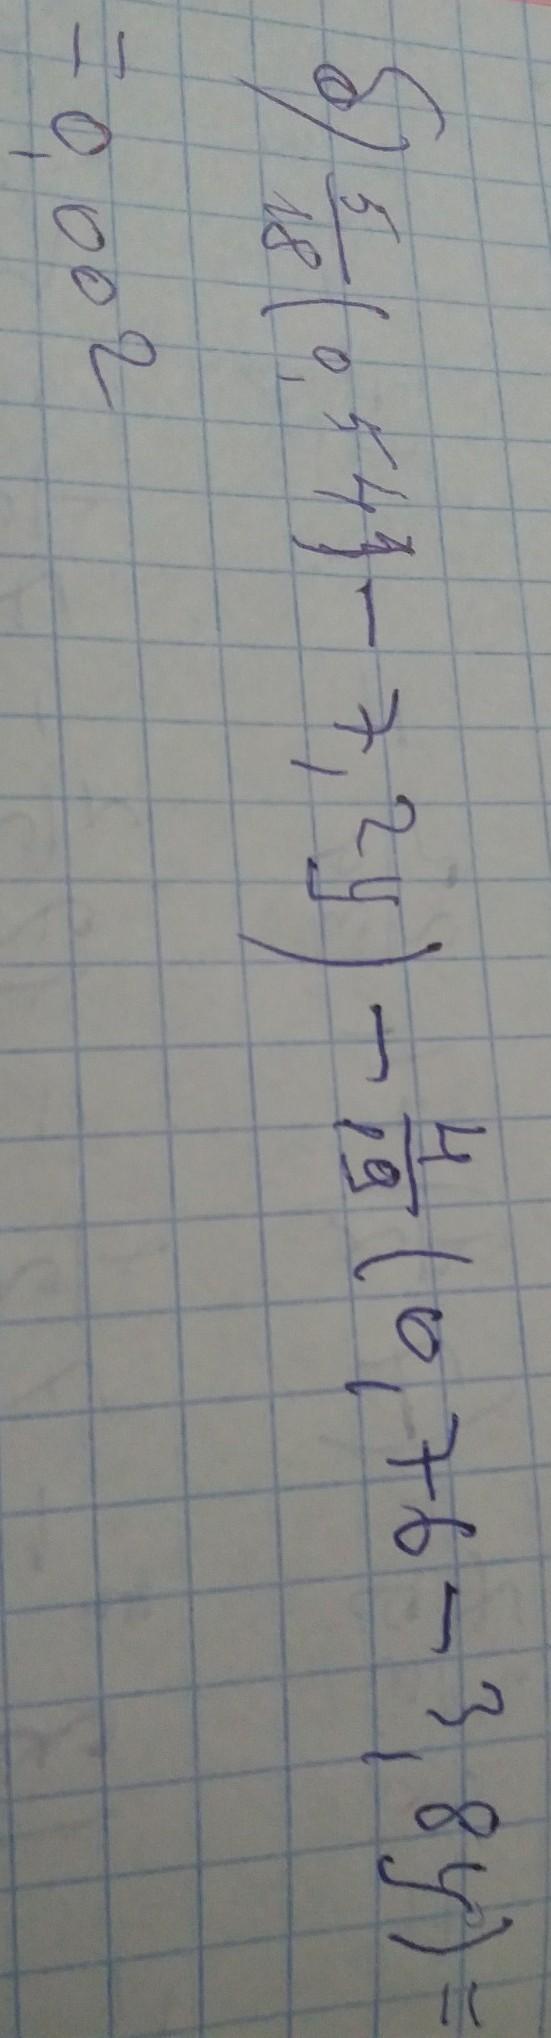 б) 5/18 (0,54 - 7,2y) - 4/19 (0,76 - 3,8y) =
= 0,002